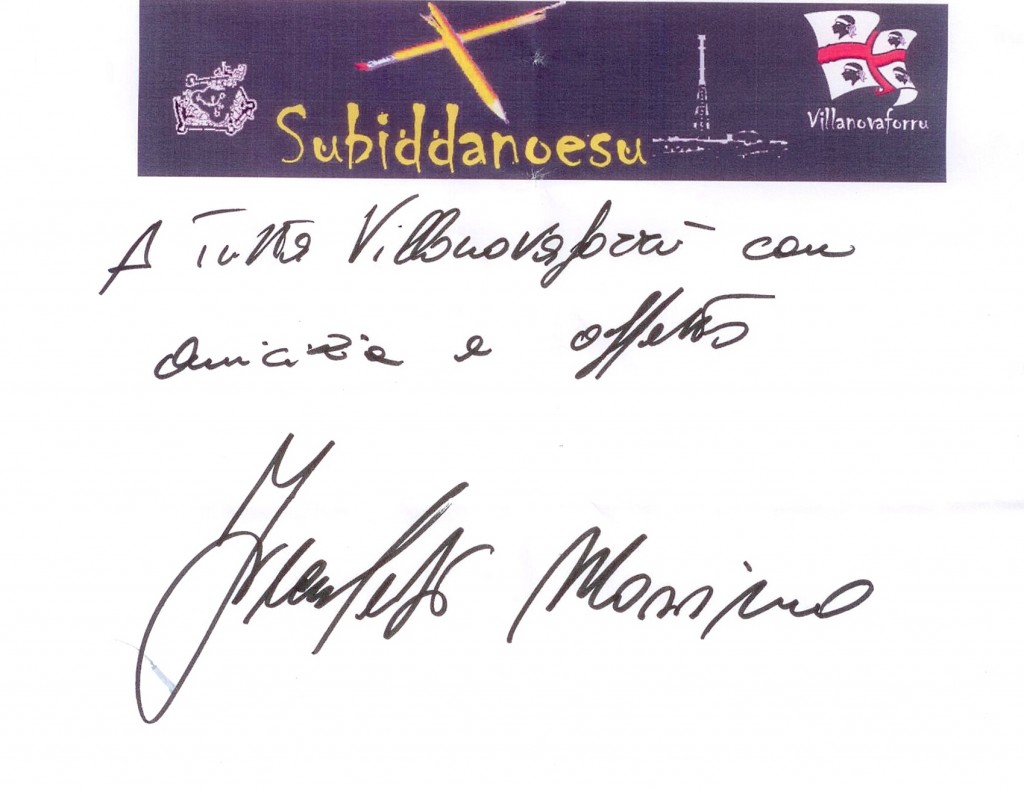 Subiddanoesu
Villanovaforru
A Tutta Villanovaforru con
amicizia e affetto
Massimo